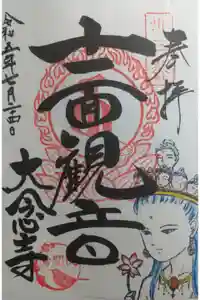 奉拝
十一面観音
令和五年七月二十四日
大念寺